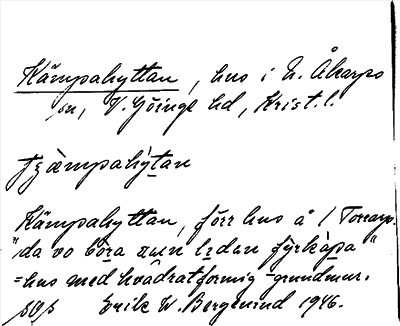 Kämpahyttan, hus i N. Åkarps
sn, V. Göinge hd, Krist. l.
Kämpahyttan, förr hus å 1 Torrarp.
"da vo bòra en liden fýrkàpa"
=hus med kvadratformig grundmur.
Erik W. Bergelind 1946.